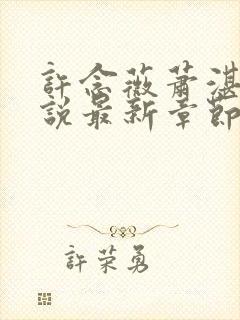 許念薇蕭湛
說最新章節
許荣勇